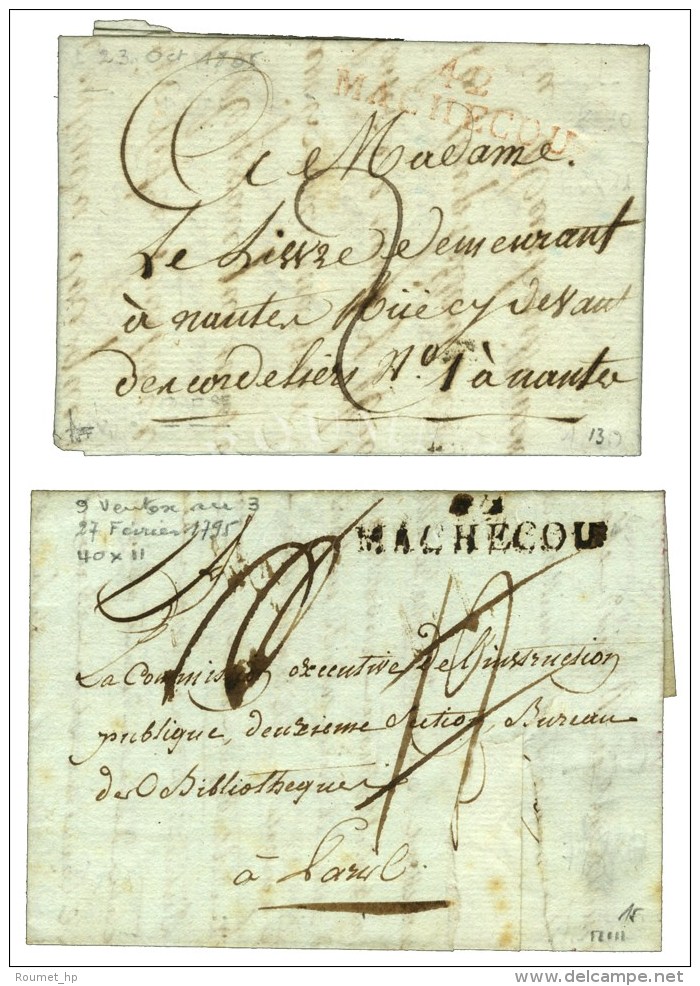 23 Oct 1795
42
MACHECOU
A Madame.
Le Livre demeurant
à nantes Rüe cy devant
des cordeliers N.° 1 à nantes
13
9 Ventose an 3
27 Février 1795
40 x 11
MACHECOU
La Commission exécutive de l'instruction
publique, deuxieme Section, Bureau
des Bibliotheques
à Paris.
15
Roumet_hp
delcampe.net